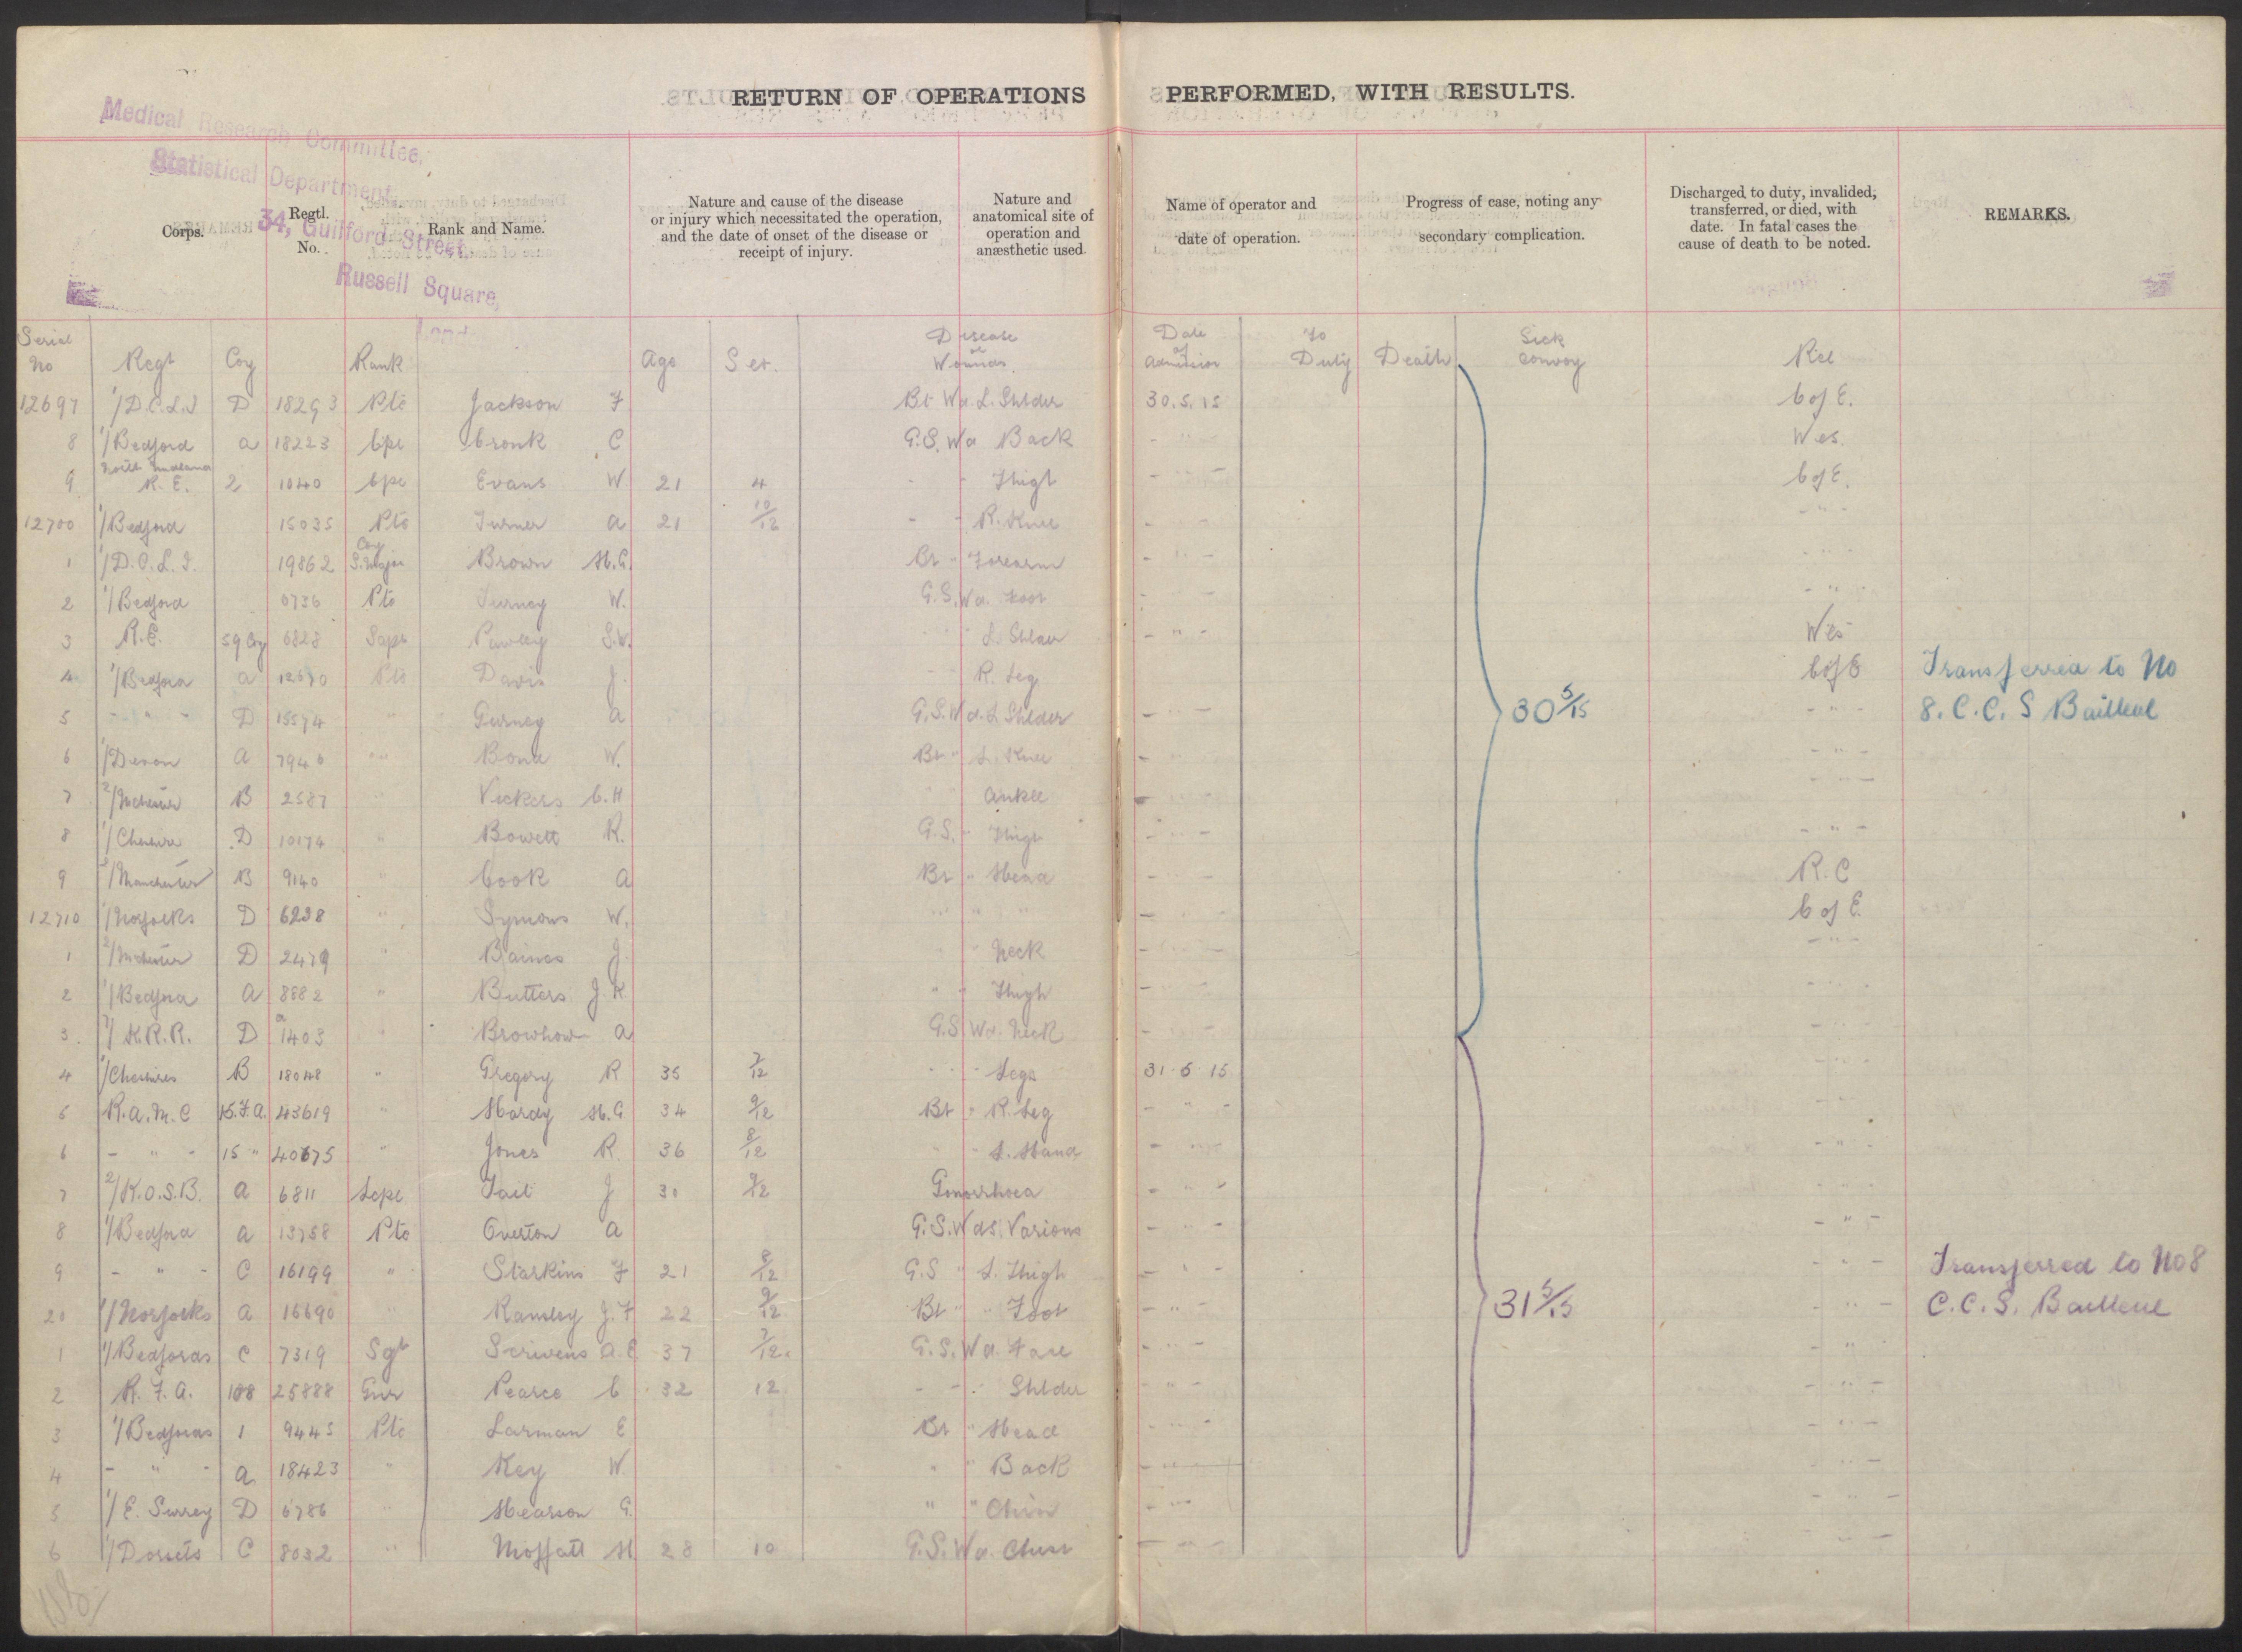 RETURN OF OPERATIONS PERFORMED, WITH RESULTS.
Medical Research Committee,
Statistical Department
34, Guilford Street,
Russell Square,
Corps.
Regtl. No.
Rank and Name.
Nature and cause of the disease
or injury which necessitated the operation,
and the date of onset of the disease or
receipt of injury.
Nature and
anatomical site of
operation and
anæsthetic used.
Name of operator and
date of operation.
Progress of case, noting any
secondary complication.
Discharged to duty, invalided,
transferred, or died, with
date. In fatal cases the
cause of death to be noted.
REMARKS.
Serial No Regt Coy Rank Age Ser. Disease or Wounds. Date of Admission To Duty Death Sick Convoy Rel
12697 1/D.C.L.I D 18293 Pte Jackson F Bt Wd. L. Shlder 30.5.15 C of E.
8 1/Bedford A 18223 Cpl Cronk C G.S. Wd Back - " - Wes.
9 North Midland R.E. 2 1040 Cpl Evans W. 21 4 - - Thigh - " - C of E.
12700 1/Bedford 15035 Pte Turner A 21 10/12 - - R. Knee - " - - " -
1 1/D.C.L.I. 19862 Coy S. Major Brown H.G. Bt - Forearm - " - - " -
2 1/Bedford 6736 Pte W. G.S. Wd. Foot - " - - " -
3 R.E. 59 Coy 6828 Sapr Pawley S.W. L. Shlder - " - Wes
4 1/Bedford A Pte Davis J. - - R. Leg C of E
5 - " - D 15574 " Gurney A G.S. Wd. L Shlder - " - - " -
6 1/Devon A 7940 " Bond W. Bt " L. Knee - " - " -
7 2/Mchester B 2587 " Vickers C.H " Ankle - " - - " -
8 1/Cheshire D 10174 " Bowett R. G.S. " Thigh - " - - " -
9 2/Manchester B 9140 " Cook A Bt " Head - " - R.C
12710 1/Norfolks D 6238 " Symons W. " " " - " - C of E.
1 2/Mchester D 2479 " Baines J. " " Neck - " - - " -
2 1/Bedford A 8882 " Butters J.K " " Thigh - " - - " -
3 K.R.R. D 1403 " Browhow A G.S Wd. Neck - " - - " -
30 5/15
Transferred to No
8. C.C.S Bailleul
4 1/Cheshires B 18048 " Gregory R 35 7/12 - " - Legs 31.5.15 - " -
5 R.A.M.C 15.F.A. 43619 " Hardy H.G. 34 9/12 Bt " R. Leg - " - - " -
6 - " - 15 " 40675 " Jones R. 36 8/12 " " L. Hand - " - - " -
7 2/K.O.S.B. A 6811 Lcpl Tait J 30 9/12 Gonorrhoea - " - - " -
8 1/Bedford A 13758 Pte Overton A G.S. Wds. Various - " - - " -
9 - " - C 16199 " Starkins F 21 8/12 G.S " L. Thigh - " - - " -
20 1/Norfolks A 16690 " Ransley J.F 22 9/12 Bt " " Foot - " - - " -
1 1/Bedfords C 7319 Sgt Scrivens A.E 37 7/12 G.S. Wd. Face - " - "
2 R.F.A. 108 25888 Gnr Pearce C 32 12 - - Shlder - " - - " -
3 1/Bedfords 1 9445 Pte Larman E Bt " Head - " - - " -
4 - " - A 18423 " Key W " " Back - " - - " -
5 1/E. Surrey D 6786 " Hearson G. " " Chin - " - - " -
6 1/Dorsets C 8032 " Moffatt H 28 10 G.S. Wd. Chest - " - - " -
31 5/15
Transferred to No 8
C.C.S. Bailleul